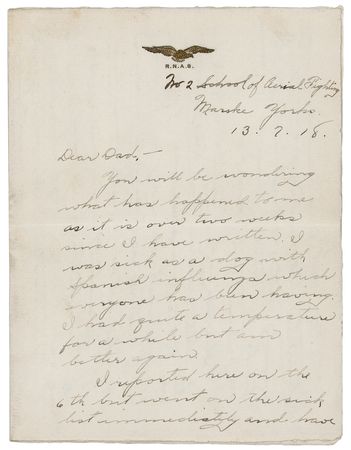 R.N.A.S.
No 2 School of Aerial Fighting
Marske Yorks.
13.7.18.
Dear Dad,-
You will be wondering
what has happened to me
as it is over two weeks
since I have written. I
was sick as a dog with
Spanish influenza which
everyone has been having.
I had quite a temperature
for a while but am
better again.
I reported here on the
6th but went on the sick
list immediately and have